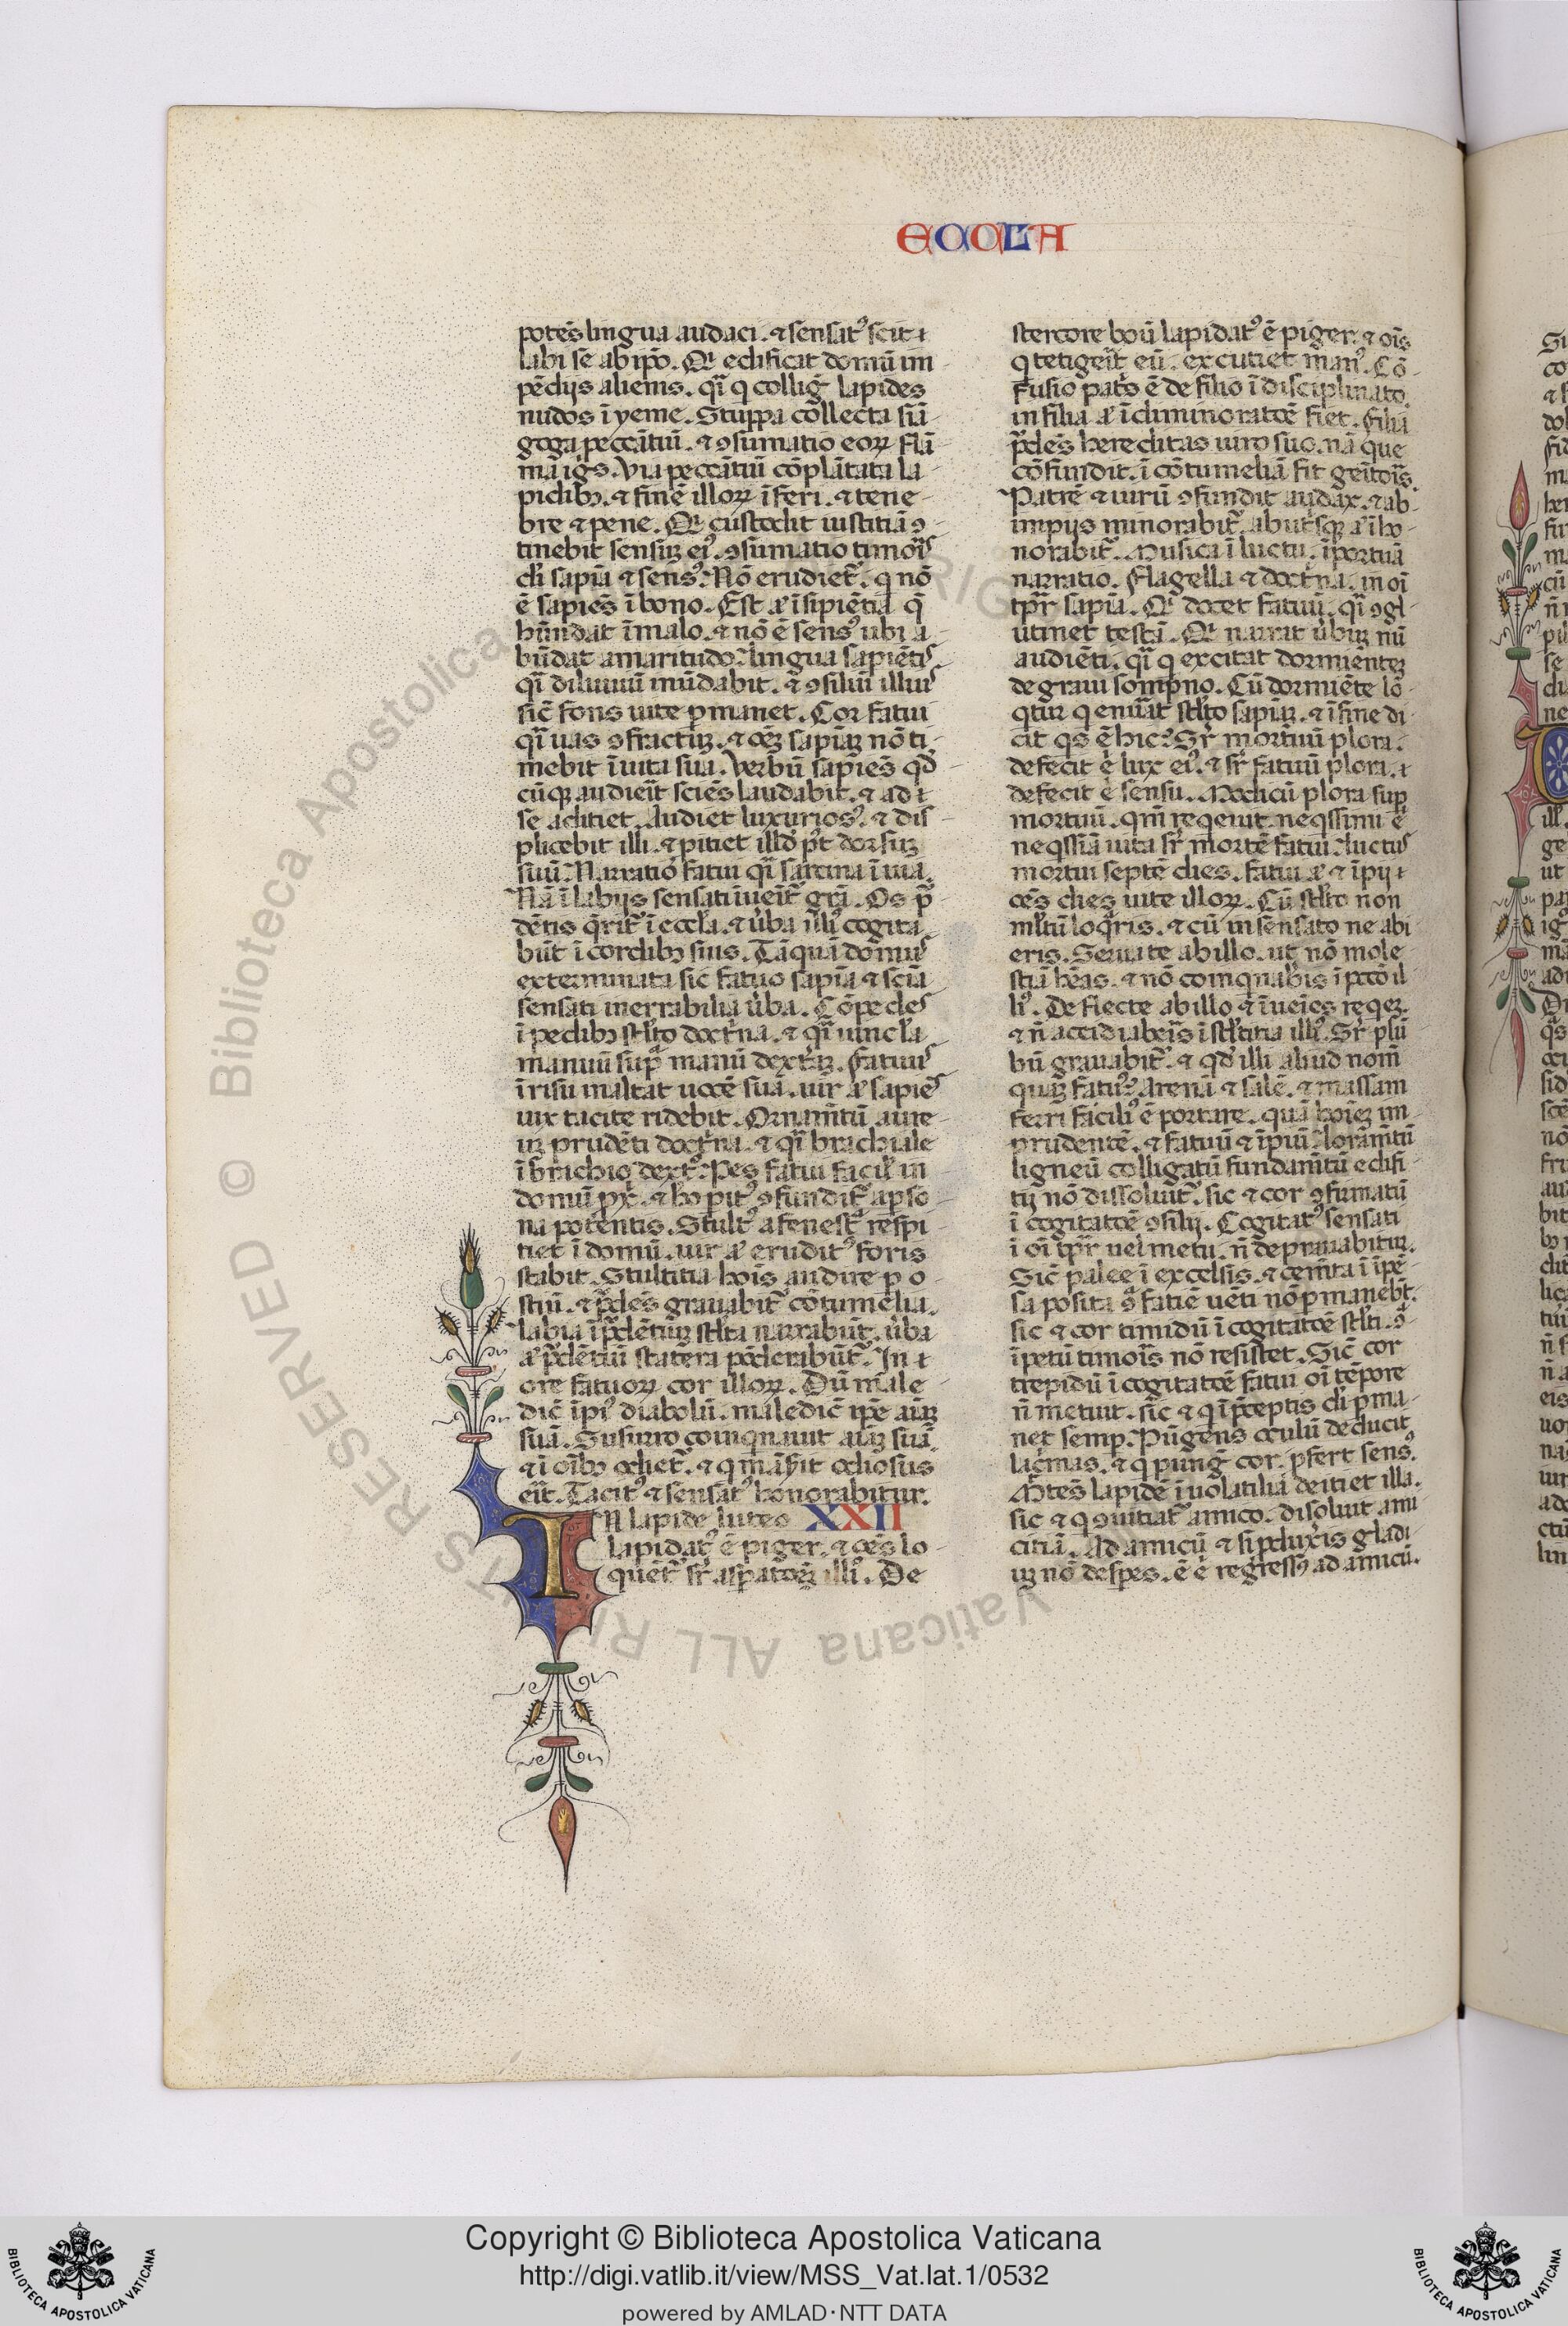 ECCLA
potēs lingua audaci. ⁊ sensatꝰ scit ⁊
labi se ab ip̄o. Qͥ edificat domū im
pēdijs alienis. qͣi q̇ colliḡ lapides
nudos ī yeme. Stuppa collecta sīa
goga peccātiū. ⁊ ꝯsumatio eoꝝ flā
ma igīs. Via peccātiū cōplātata la
pidibꝫ. ⁊ finē illoꝝ īferi. ⁊ tene
bre ⁊ pene. Qͥ custodit iustitiā ꝯ
tinebit sensuꝫ eiꝰ. ꝯsumatio timoīs
di sapīa ⁊ sensꝰ. Nō erudiet᷑. q̇ nō
ē sapiēs ī bono. Est aū īsipiētia q̄
būndat ī malo. ⁊ nō ē sensꝰ ubi a
būdat amaritudo. lingua sapiētis
qͣi diluuiū mūdabit. ⁊ ꝯsiliū illius
sic̄ fons uite ꝑmanet. Cor fatui
qͣi uas ꝯfractuꝫ. ⁊ oēꝫ sapīaꝫ nō ti
mebit ī uita sua. Verbū sapiēs qd̄
cūqꝫ audieīt sciēs laudabit. ⁊ ad ⁊
se aditiet. Audiet luxuriosꝰ. ⁊ dis
plicebit illi. ⁊ ꝓitiet illd̄ pꝰt dorsuꝫ
suū. Narratio fatui qͣi sarcina ī uia.
Nā ī labijs sensati īueīt᷑ grā. Os p̄
dētis q̄rit᷑ ī eccła. ⁊ ūba illiꝰ cogita
būt ī cordibꝫ suis. Tāquā domus
exterminata sic fatuo sapīa ⁊ scīa
sensati inerrabilia ūba. Cōpedes
ī pedibꝫ stłto doctͥna. ⁊ qͣi uincła
manuū suꝑ manū dextͣꝫ. Fatuus
ī risu īnaltat uocē suā. uir aū sapiēs
uix tacite ridebit. Ornam̄tū aure
uꝫ prudēti doctͥna. ⁊ qͣi brachiale
ī brachio dextͦ. Pes fatui facił in
domū ꝓxͥ. ⁊ hō ꝑitꝰ ꝯfundit᷑ a pso
na potentis. Stultꝰ a fenestͣ respi
tiet ī domū. uir aū eruditꝰ foris
stabit. Stultitia hoīs audire ꝑ o
stiū. ⁊ p̄dēs grauabit᷑ cōtumelia.
labia īp̄dētiuꝫ stłta narrabūt. ūba
aū p̄dētiū statera pōderabūt᷑. In ⁊
ore fatuoꝝ cor illoꝝ. Dū male
dic̄ īpiꝰ diabolū. maledic̄ ip̄e aīaꝫ
suā. Susurro coinqͥnauit aīaꝫ suā.
⁊ ī oībꝫ odiet᷑. ⁊ q̇ māsͥit odiosus
eīt. Tacitꝰ ⁊ sensatꝰ honorabitur.
IN lapide luteo XXII
lapidatꝰ ē piger. ⁊ oēs lo
quēt᷑ sr̄ asꝑatōeꝫ illiꝰ. De
stercore boū lapidatꝰ ē piger. ⁊ oīs
q̇ tetigeīt eū. excutiet manꝰ. Cō
fusio patͥs ē de filio īdisciplinato.
in filia aū ī diminoratōe fiet. Filia
p̄dēs hereditas uiro suo. nā que
cōfundit. ī cōtumeliā fit geītoīs.
Patrē ⁊ uirū ꝯfundit audax. ⁊ ab
impijs minorabit᷑. ab utͥsqꝫ aū īho
norabit᷑. Musica ī luctu. īportūa
narratio. Flagella ⁊ doctͥna. in oī
tp̄r sapīa. Qͥ docet fatuū. qͣi ꝯgł
utinet testā. Qͥ narrat ūbuꝫ nū
audiēti. qͣi q̇ excitat dormiēteꝫ
de graui sompno. Cū dormiēte lō
qt̄ur q̇ enuͣāt stłto sapīaꝫ. ⁊ ī fine di
cit q̇s ē hic. Sr̄ mortuū plora.
defecit ē lux eiꝰ. ⁊ sr̄ fatuū plora. ⁊
defecit ē sensu. Modicū plora suꝑ
mortuū. qm̄ reqͥeuit. neq̇ssimi ē
neq̇ssīa uita sr̄ mortē fatui. luctus
mortui septē dies. fatui aū ⁊ īpij ⁊
oēs dies uite illoꝝ. Cū stłto non
młtū loqͣris. ⁊ cū insensato ne abi
eris. Serua te ab illo. ut nō mole
stiā hēas. ⁊ nō coinqͥnabis ī pctō il
liꝰ. Deflecte ab illo ⁊ īueīes reqͥeꝫ.
⁊ n̄ accidiabeīs ī stłtitia illiꝰ. Sr̄ plū
bū grauabit᷑. ⁊ qd̄ illi aliud nom̄
quaꝫ fatuꝰ. Arenā ⁊ salē. ⁊ massam
ferri faciliꝰ ē portare. quā hoīeꝫ im
prudentē. ⁊ fatuū ⁊ īpiū. loram̄tū
ligneū colligatū fundam̄tū edifi
tij nō dissoluit᷑. sic ⁊ cor ꝯfirmatū
ī cogitatōe ꝯsilij. Cogitatꝰ sensati
ī oī tp̄r uel metu. n̄ deprauabituꝫ.
Sic̄ palee ī excelsis. ⁊ cem̄ta ī īpē
sa posita ꝯͣ fatiē uēti nō ꝑmanebt̄.
sic ⁊ cor timidū ī cogitatōe stłti. ꝯͣ
īpetū timoīs nō resistet. Sic̄ cor
trepidū ī cogitatōe fatui oī tēpore
n̄ metuit. sic̄ ⁊ q̇ ī p̄ceptis di ꝑma
net semꝑ. Pūgens oculū deducit
lacͥmas. ⁊ q̇ punḡ cor. ꝓfert sensꝰ.
Mītēs lapidē ī uolatilia deitiet illa.
sic ⁊ q̇ ꝯuitiat᷑ amico. disoluit ami
citiā. Ad amicū ⁊ si ꝓduxͥis gladi
uꝫ nō despes. ē ē regressꝰ ad amicū.
© Biblioteca Apostolica Vaticana ALL RIGHTS RESERVED
Copyright © Biblioteca Apostolica Vaticana
http://digi.vatlib.it/view/MSS_Vat.lat.1/0532
powered by AMLAD·NTT DATA
BIBLIOTECA APOSTOLICA VATICANA
BIBLIOTECA APOSTOLICA VATICANA